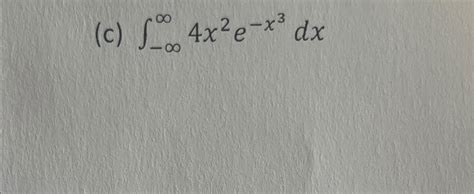 (c) ∫_{-∞}^{∞} 4x²e^{-x³} dx